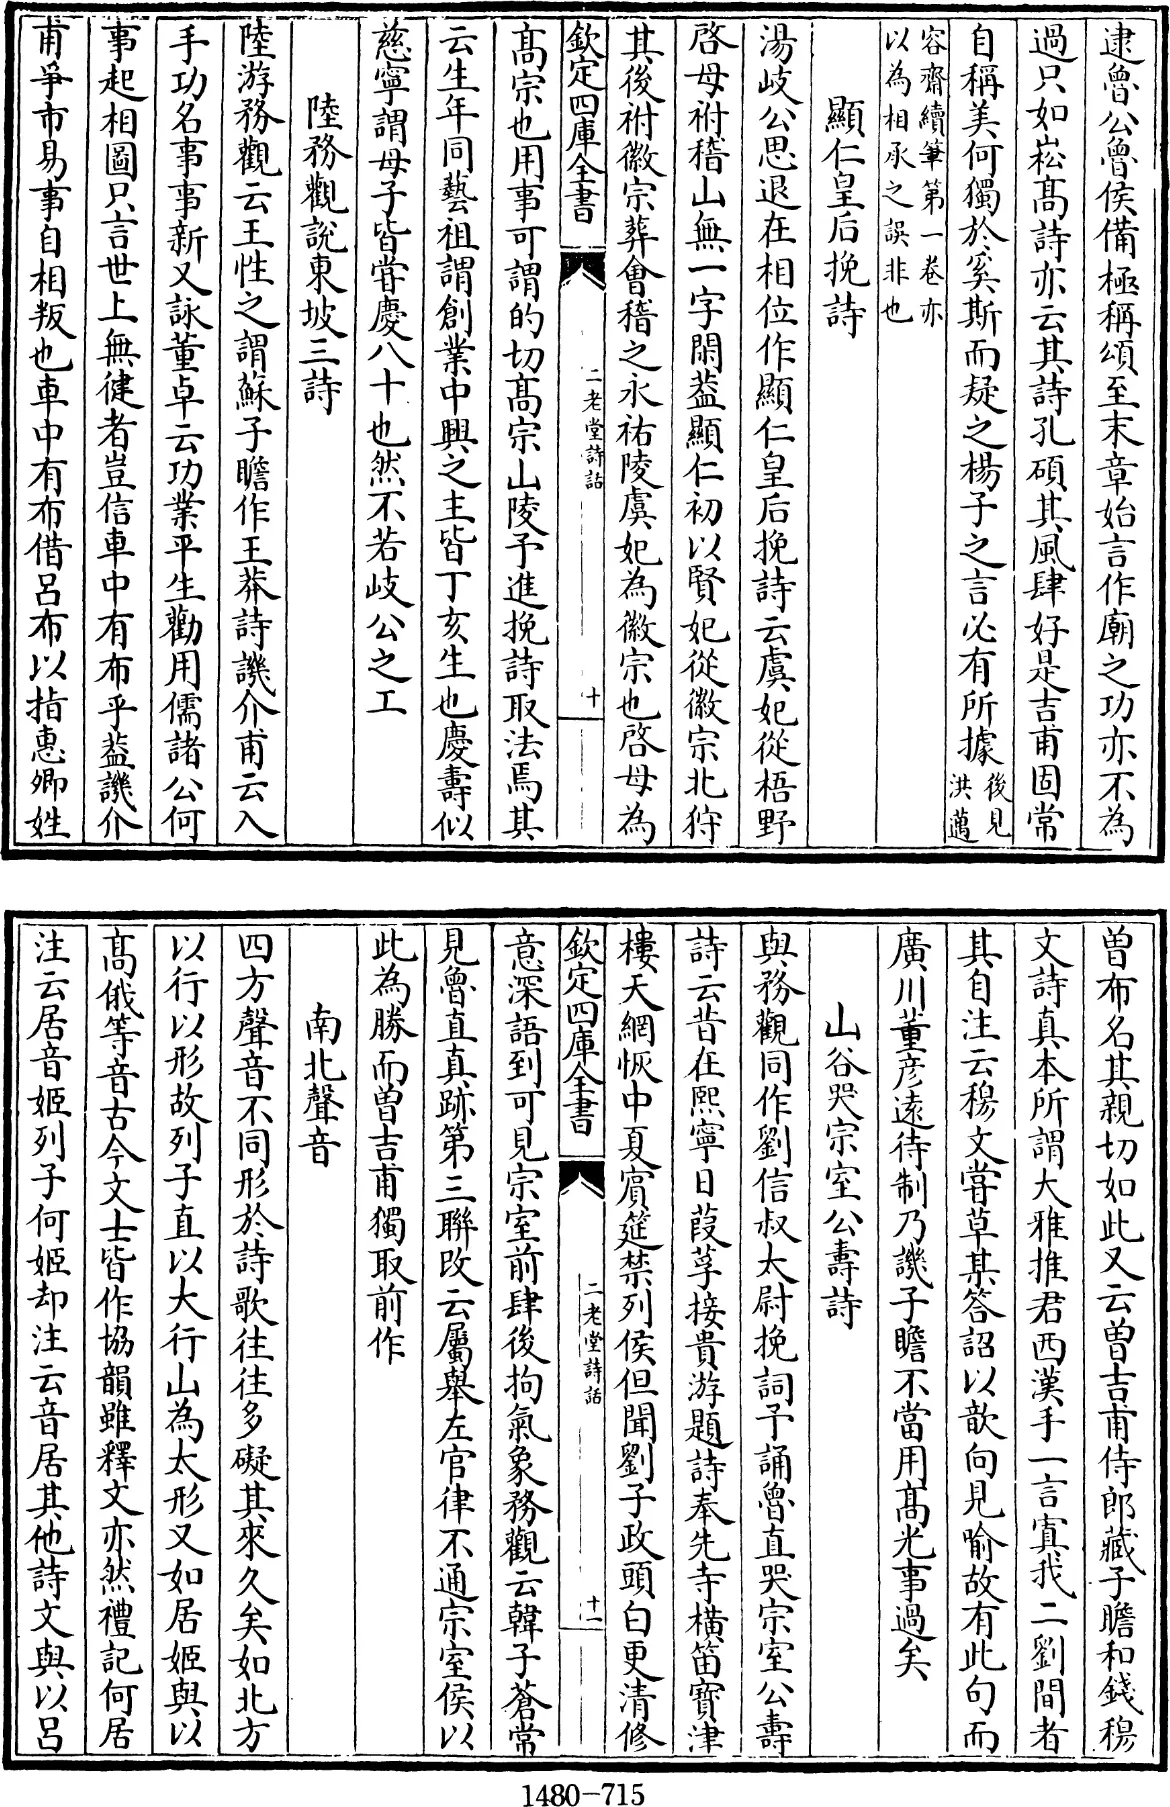 逮魯公魯侯備極稱頌至末章始言作廟之功亦不為
過只如崧髙詩亦云其詩孔碩其風肆好是吉甫固常
自稱美何獨於奚斯而疑之楊子之言必有所據後見洪邁
容齋續筆第一卷亦以為相承之誤非也
顯仁皇后挽詩
湯岐公思退在相位作顯仁皇后挽詩云虞妃從梧野
啓母祔稽山無一字閑葢顯仁初以賢妃從徽宗北狩
其後祔徽宗葬會稽之永祐陵虞妃為徽宗也啓母為
欽定四庫全書
二老堂詩話
十
髙宗也用事可謂的切髙宗山陵予進挽詩取法焉其
云生年同藝祖謂創業中興之主皆丁亥生也慶壽似
慈寧謂母子皆嘗慶八十也然不若岐公之工
陸務觀說東坡三詩
陸游務觀云王性之謂蘇子瞻作王莽詩譏介甫云入
手功名事事新又詠董卓云功業平生勸用儒諸公何
事起相圖只言世上無健者豈信車中有布乎葢譏介
甫爭市易事自相叛也車中有布借呂布以指惠卿姓
曽布名其親切如此又云曽吉甫侍郎藏子瞻和錢穆
文詩真本所謂大雅推君西漢手一言寘我二劉間者
其自注云穆文嘗草某答詔以歆向見喻故有此句而
廣川董彦遠待制乃譏子瞻不當用髙光事過矣
山谷哭宗室公壽詩
與務觀同作劉信叔太尉挽詞予誦魯直哭宗室公壽
詩云昔在熙寧日葭莩接貴游題詩奉先寺橫笛寳津
樓天網恢中夏賓筵禁列侯但聞劉子政頭白更清修
欽定四庫全書
二老堂詩話
十一
意深語到可見宗室前肆後拘氣象務觀云韓子蒼常
見魯直真跡第三聯改云屬舉左官律不通宗室侯以
此為勝而曽吉甫獨取前作
南北聲音
四方聲音不同形於詩歌往往多礙其來久矣如北方
以行以形故列子直以大行山為太形又如居姬與以
髙俄等音古今文士皆作協韻雖釋文亦然禮記何居
注云居音姬列子何姬却注云音居其他詩文與以呂
1480-715